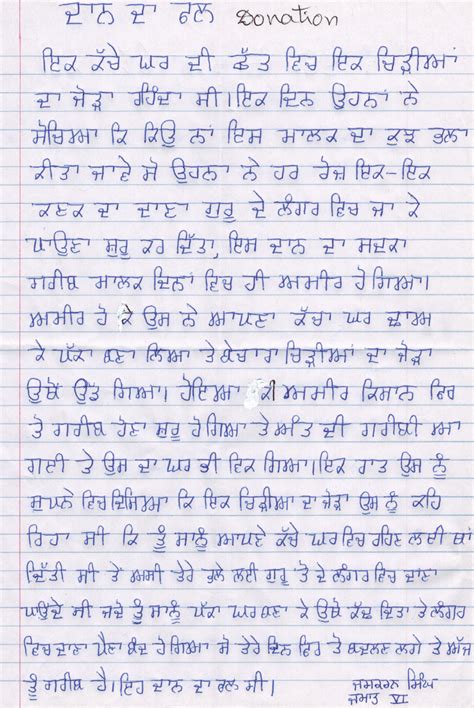 ਦਾਨ ਦਾ ਫਲ Donation
ਇਕ ਕੱਚੇ ਘਰ ਦੀ ਛੱਤ ਵਿਚ ਇਕ ਚਿੜੀਆਂ
ਦਾ ਜੋੜਾ ਰਹਿੰਦਾ ਸੀ। ਇਕ ਦਿਨ ਉਹਨਾਂ ਨੇ
ਸੋਚਿਆ ਕਿ ਕਿਉ ਨਾਂ ਇਸ ਮਾਲਕ ਦਾ ਕੁਝ ਭਲਾ
ਕੀਤਾ ਜਾਵੇ ਸੋ ਉਹਨਾ ਨੇ ਹਰ ਰੋਜ਼ ਇਕ-ਇਕ
ਕਣਕ ਦਾ ਦਾਣਾ ਗੁਰੂ ਦੇ ਲੰਗਰ ਵਿਚ ਜਾ ਕੇ
ਪਾਉਣਾ ਸ਼ੁਰੂ ਕਰ ਦਿੱਤਾ, ਇਸ ਦਾਨ ਦਾ ਸਦਕਾ
ਗਰੀਬ ਮਾਲਕ ਦਿਨਾਂ ਵਿਚ ਹੀ ਅਮੀਰ ਹੋ ਗਿਆ।
ਅਮੀਰ ਹੋ ਕੇ ਉਸ ਨੇ ਆਪਣਾ ਕੱਚਾ ਘਰ ਢਾਅ
ਕੇ ਪੱਕਾ ਬਣਾ ਲਿਆ ਤੇ ਬੇਚਾਰਾ ਚਿੜੀਆਂ ਦਾ ਜੋੜਾ
ਉਥੋਂ ਉੱਤ ਗਿਆ। ਹੋਇਆ ਕੀ ਅਮੀਰ ਕਿਸਾਨ ਫਿਰ
ਤੋ ਗਰੀਬ ਹੋਣਾ ਸ਼ੁਰੂ ਹੋ ਗਿਆ ਤੇ ਅੰਤ ਦੀ ਗਰੀਬੀ ਆ
ਗਈ ਤੇ ਉਸ ਦਾ ਘਰ ਭੀ ਵਿਕ ਗਿਆ। ਇਕ ਰਾਤ ਉਸ ਨੂੰ
ਸੁਪਨੇ ਵਿਚ ਦਿਸਿਆ ਕਿ ਇਕ ਚਿੜੀਆ ਦਾ ਜੋੜਾ ਉਸ ਨੂੰ ਕਹਿ
ਰਿਹਾ ਸੀ ਕਿ ਤੂੰ ਸਾਨੂੰ ਆਪਣੇ ਕੱਚੇ ਘਰ ਵਿਚ ਰਹਿਣ ਲਈ ਥਾਂ
ਦਿੱਤੀ ਸੀ ਤੇ ਅਸੀ ਤੇਰੇ ਭਲੇ ਲਈ ਗੁਰੂ ਤੇ ਦੇ ਲੰਗਰ ਵਿਚ ਦਾਣਾ
ਪਾਉਂਦੇ ਸੀ ਜਦੋ ਤੂੰ ਸਾਨੂੰ ਪੱਕਾ ਘਰ ਬਣਾ ਕੇ ਉਥੋ ਕੱਢ ਦਿਤਾ ਤੇ ਲੰਗਰ
ਵਿਚ ਦਾਣਾ ਪੈਣਾ ਬੰਦ ਹੋ ਗਿਆ ਸੋ ਤੇਰੇ ਦਿਨ ਫਿਰ ਤੋ ਬਦਲਣ ਲਗੇ ਤੇ ਅੱਜ
ਤੂੰ ਗਰੀਬ ਹੈ। ਇਹ ਦਾਨ ਦਾ ਫਲ ਸੀ।
ਜਸਕਰਨ ਸਿੰਘ
ਜਮਾਤ VI